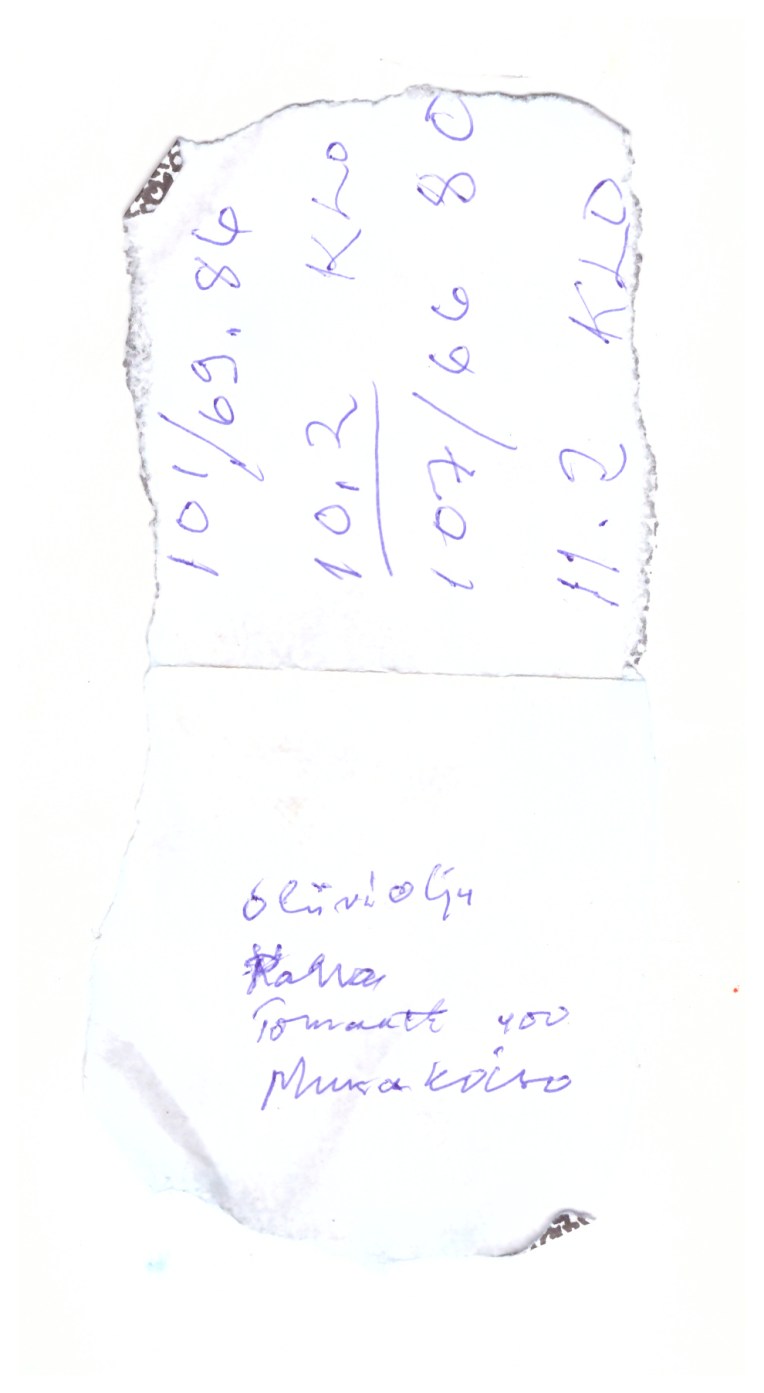 101/69. 84
10.2 KLO
107/66 80
11.2 KLO
oliiviolju
Kahva
Tomaatti 400
Munakoiso